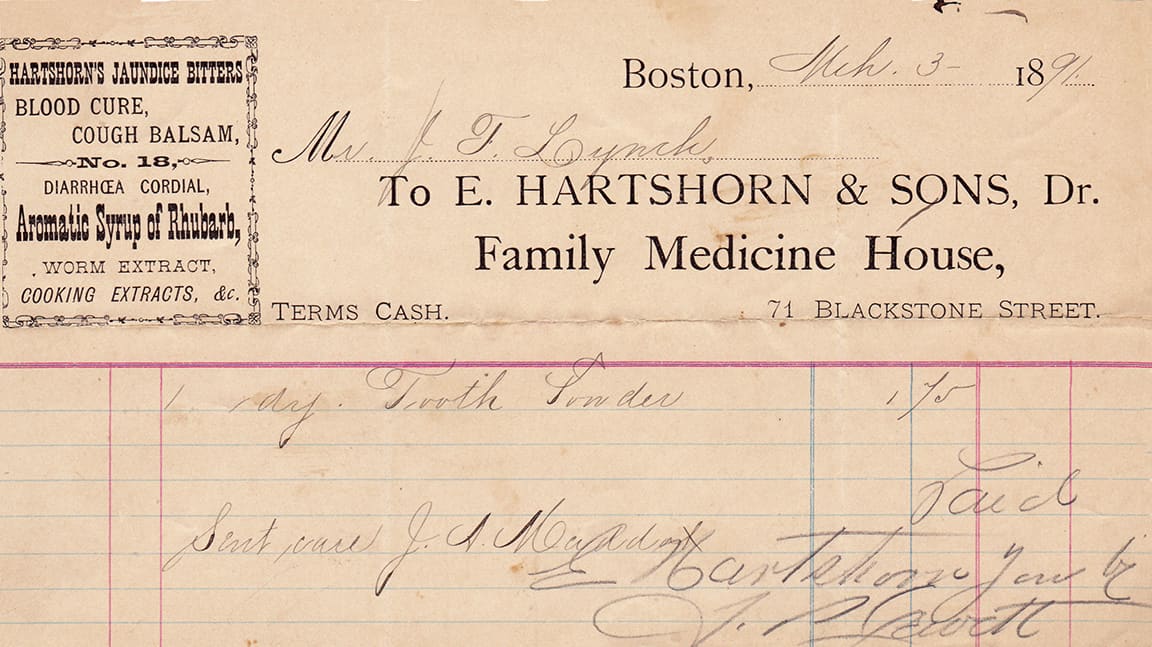 HARTSHORN'S JAUNDICE BITTERS
BLOOD CURE,
COUGH BALSAM,
No. 18,
DIARRHŒA CORDIAL,
Aromatic Syrup of Rhubarb,
WORM EXTRACT,
COOKING EXTRACTS, &c.
Boston, Mch. 3- 1891.
Mr. J. F. Lynch,
To E. HARTSHORN & SONS, Dr.
Family Medicine House,
TERMS CASH. 71 BLACKSTONE STREET.
1 dz. Tooth Powder 1 75
Paid
Sent care J. A.
E Hartshorn Sons by
J.